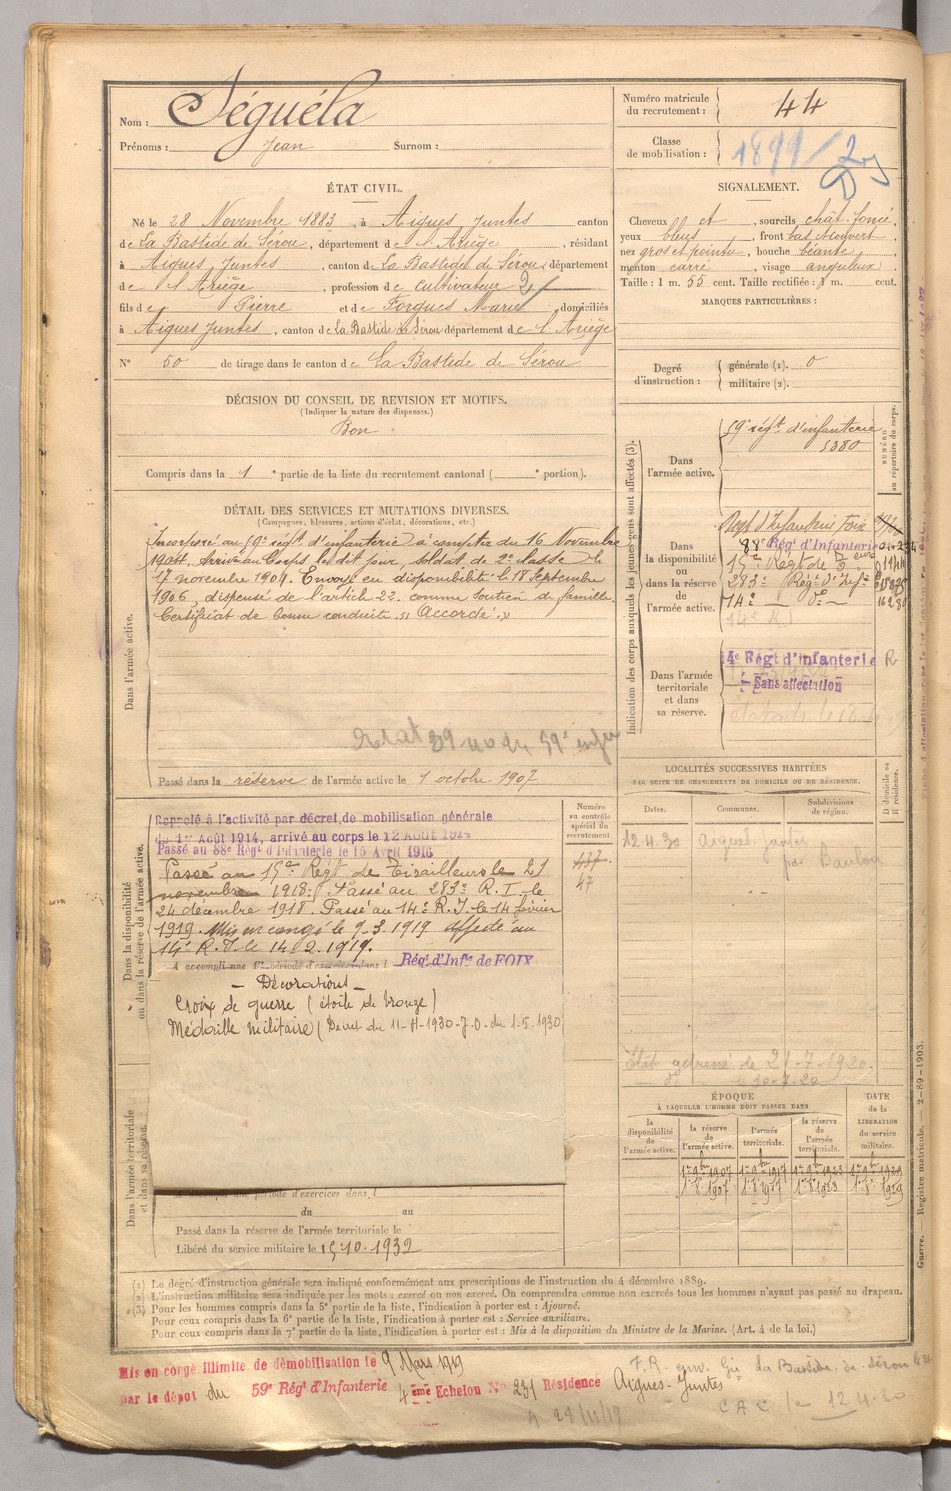 Nom : Séguéla
Prénoms : Jean Surnom :
Numéro matricule du recrutement : 44
Classe de mobilisation : 1899/2
ÉTAT CIVIL.
Né le 28 Novembre 1883, à Aigues Juntes canton
de La Bastide de Sérou, département de l'Ariège, résidant
à Aigues Juntes, canton de La Bastide de Sérou, département
de l'Ariège, profession de cultivateur
fils de Pierre et de Forgues Marie domiciliés
à Aigues Juntes, canton de la Bastide de Sérou département de l'Ariège
N° 50 de tirage dans le canton de La Bastide de Sérou
SIGNALEMENT.
Cheveux et, sourcils chât. foncé,
yeux bleus, front bas et ouvert,
nez gros et pointu, bouche béante,
menton carré, visage anguleux.
Taille : 1 m. 55 cent. Taille rectifiée : 1 m. cent.
MARQUES PARTICULIÈRES :
Degré d'instruction : générale (1). 0
militaire (2).
DÉCISION DU CONSEIL DE REVISION ET MOTIFS.
(Indiquer la nature des dispenses.)
Bon
Compris dans la 1e partie de la liste du recrutement cantonal ( e portion).
DÉTAIL DES SERVICES ET MUTATIONS DIVERSES.
(Campagnes, blessures, actions d'éclat, décorations, etc.)
Dans l'armée active.
Incorporé au 59e régt d'infanterie à compter du 16 Novembre
1904. Arrivé au Corps le dit jour, soldat de 2e classe le
17 novembre 1904. Envoyé en disponibilité le 18 Septembre
1906, dispensé de l'article 22. comme soutien de famille.
Certificat de bonne conduite « Accordé »
Passé dans la réserve de l'armée active le 1 octobre 1907
Indication des corps auxquels les jeunes gens sont affectés (3).
NUMÉRO au répertoire du corps.
Dans l'armée active.
59e régt d'infanterie
5380
Dans la disponibilité ou dans la réserve de l'armée active.
Régt d'Infanterie Foix
88e Régt d'Infanterie
15e Régt de Teurs
283e Régt d'Infie
14e do
Dans l'armée territoriale et dans sa réserve.
4e Régt d'Infanterie R
Sans affectation
Dans la disponibilité ou dans la réserve de l'armée active.
Numéro au contrôle spécial du recrutement.
437
47
Rappelé à l'activité par décret de mobilisation générale
du 1er Août 1914, arrivé au corps le 12 AOUT 1914
Passé au 88e Régt d'Infanterie le 15 Avril 1916
Passé au 15e Régt de Tirailleurs le 21
novembre 1918. Passé au 283e R.I. le
24 décembre 1918. Passé au 14e R.I. le 14 février
1919. Mis en congé le 9-3.1919 affecté au
14e R.I. le 14.2.1919.
A accompli une 1re période d'exercices dans l Régt d'Infie de FOIX
Décorations
Croix de guerre (étoile de bronze)
Médaille militaire (Décret du 11-4-1930-J.O. du 1.5.1930)
Dans l'armée territoriale et dans sa réserve.
A accompli une période d'exercices dans l
du au
Passé dans la réserve de l'armée territoriale le
Libéré du service militaire le 15.10.1932
LOCALITÉS SUCCESSIVES HABITÉES
PAR SUITE DE CHANGEMENTS DE DOMICILE OU DE RÉSIDENCE.
D domicile ou R résidence.
Dates. Communes. Subdivisions de région.
12.4.30 Aigues Juntes
par Baulou
État adressé le 21-7-1920.
do le 30-7-20
ÉPOQUE
À LAQUELLE L'HOMME DOIT PASSER DANS
la disponibilité de l'armée active.
la réserve de l'armée active.
l'armée territoriale.
la réserve de l'armée territoriale.
DATE de la LIBÉRATION du service militaire.
1er 8bre 1907 1er 8bre 1917 1er 8bre 1923 1er 8bre 1929
(1) Le degré d'instruction générale sera indiqué conformément aux prescriptions de l'instruction du 4 décembre 1889.
(2) L'instruction militaire sera indiquée par les mots : exercé ou non exercé. On comprendra comme non exercés tous les hommes n'ayant pas passé au drapeau.
(3) Pour les hommes compris dans la 5e partie de la liste, l'indication à porter est : Ajourné.
Pour ceux compris dans la 6e partie de la liste, l'indication à porter est : Service auxiliaire.
Pour ceux compris dans la 7e partie de la liste, l'indication à porter est : Mis à la disposition du Ministre de la Marine. (Art. 4 de la loi.)
Guerre. — Registre matricule. — 2-89-1903.
Mis en congé illimité de démobilisation le 9 Mars 1919
par le dépôt du 59e Régt d'Infanterie 4ème Echelon No 231 Résidence Aigues-Juntes
F.R. env. Gie La Bastide-de-Sérou
C A C le 12.4.30